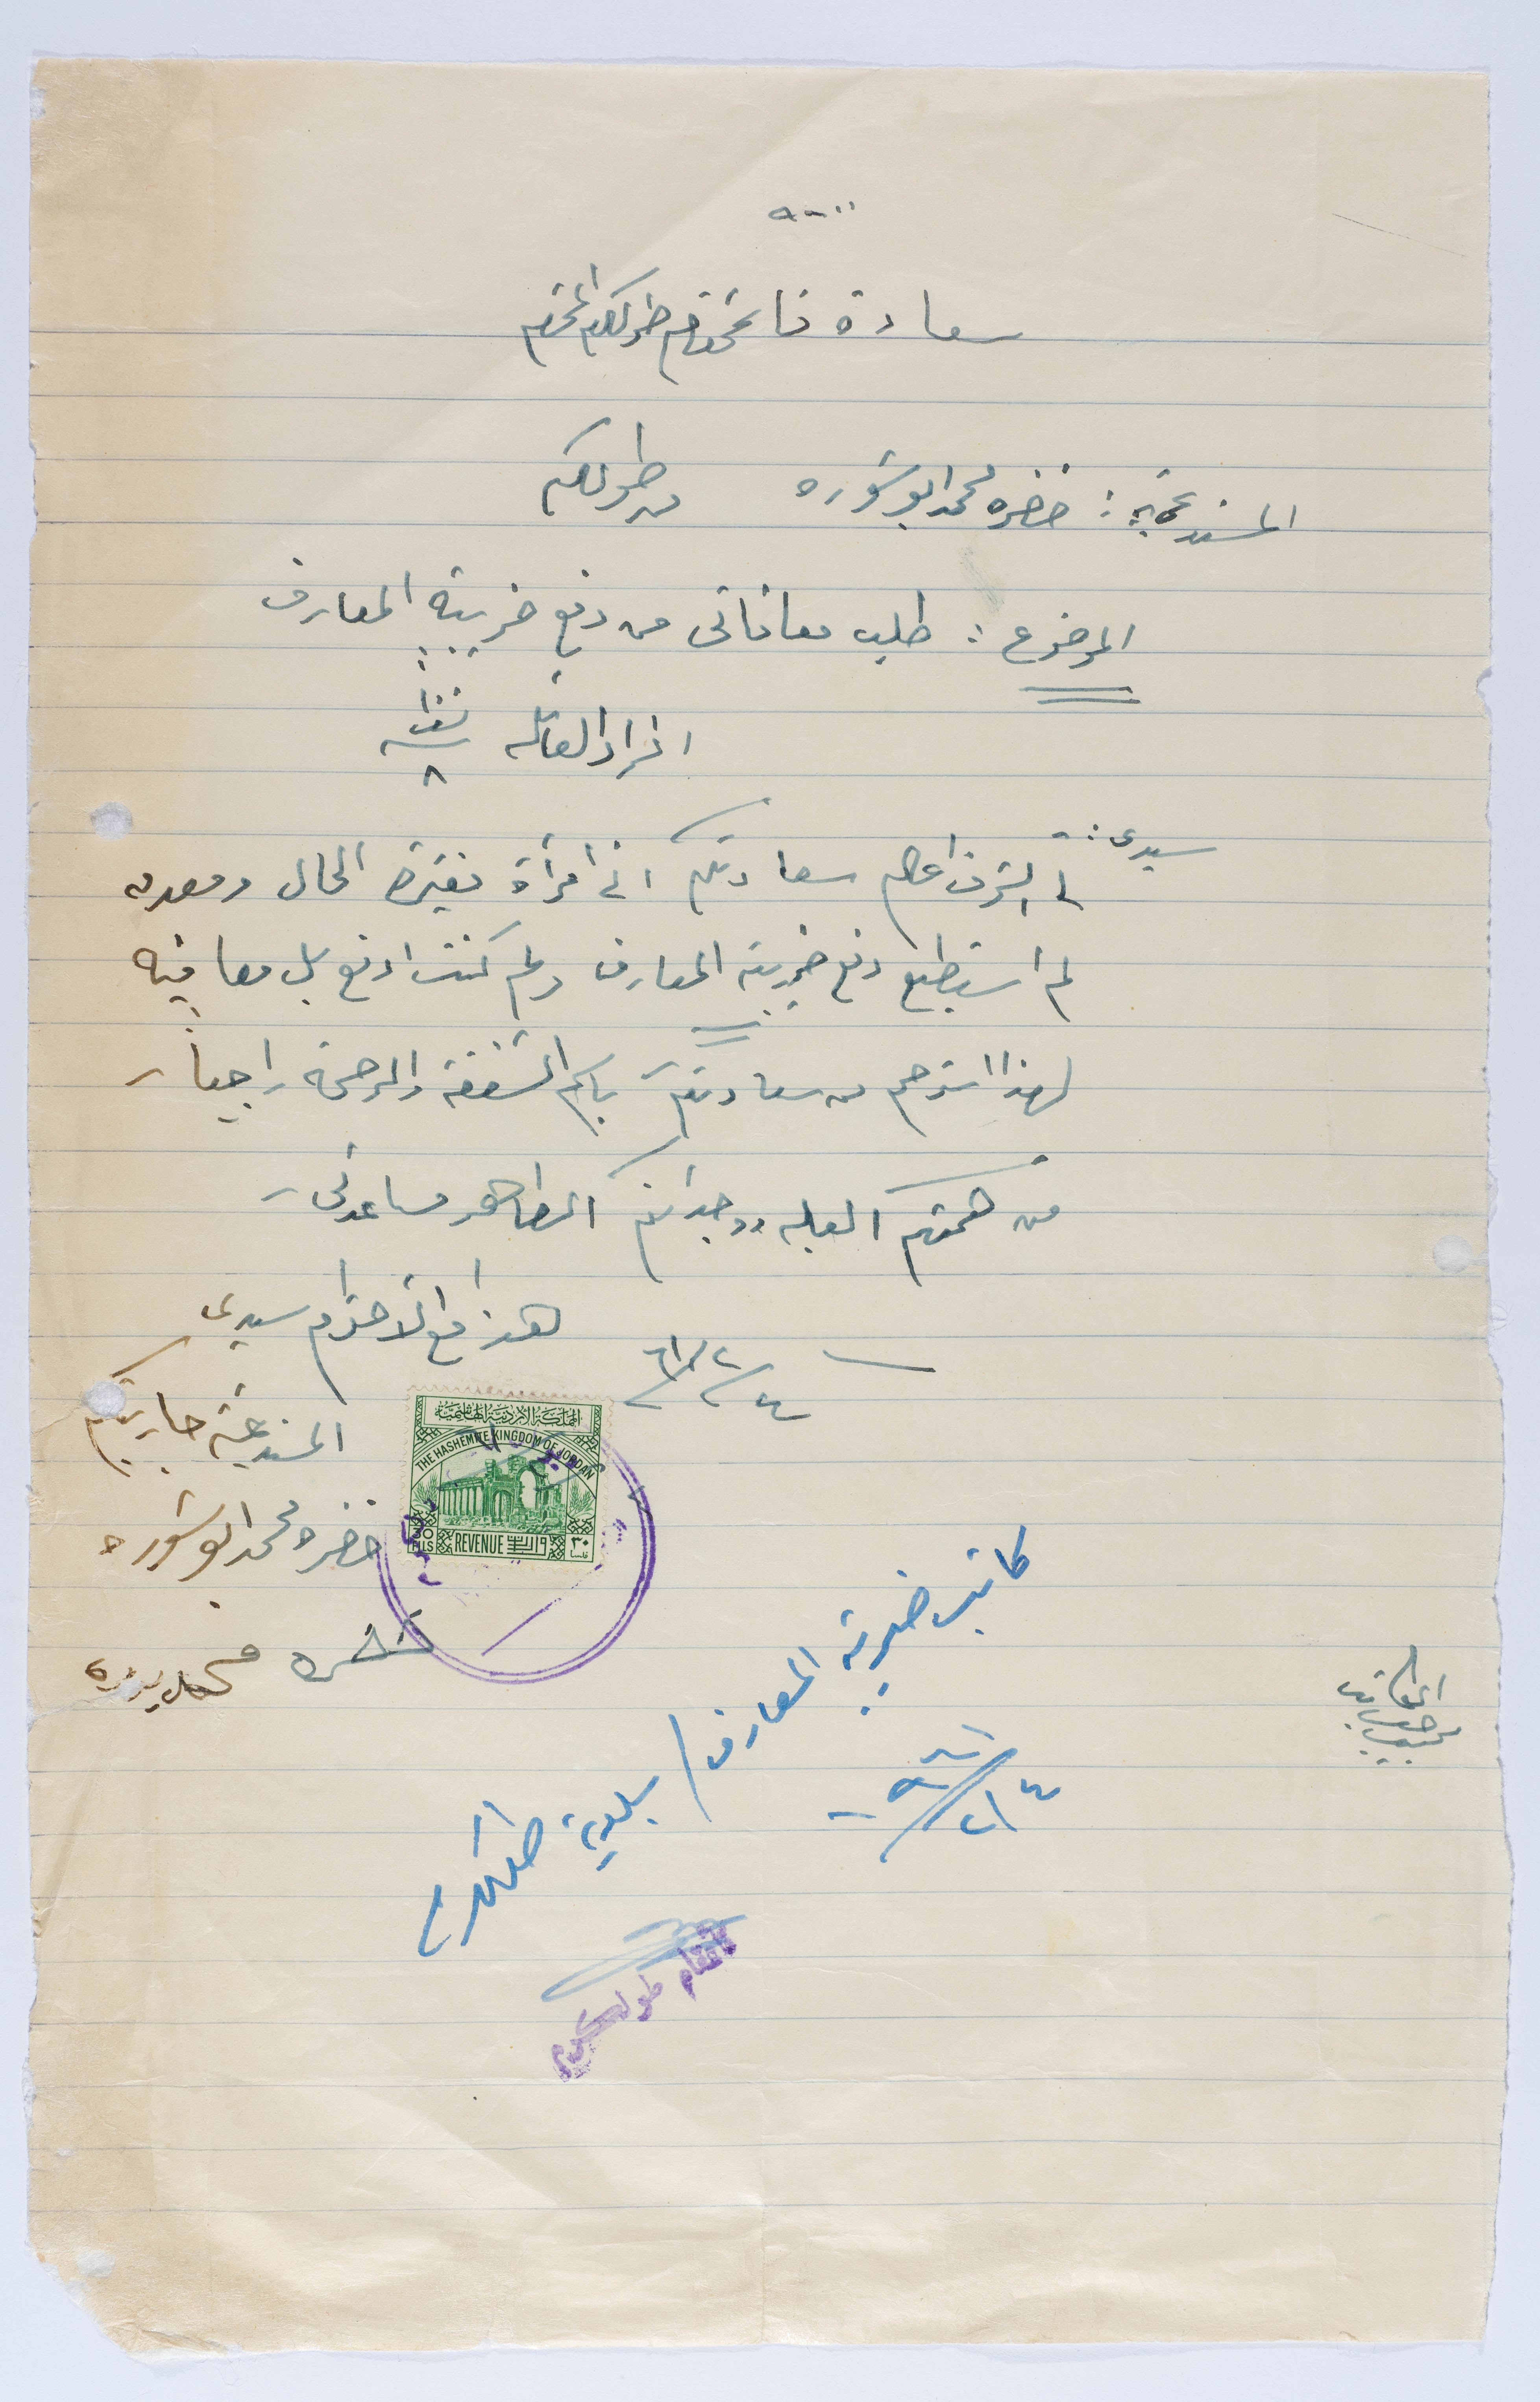 سعادة قائمقام طولكرم المحترم
المستدعية : خضره محمد ابو شوره من طولكرم
الموضوع : طلب معافاتي من دفع ضريبة المعارف
افراد العائلة
٨
سيدي :
لي الشرف اعلم سعادتكم اني امرأة فقيرة الحال ومعدمه
لم استطيع دفع ضريبة المعارف ولم كنت ادفع بل معافيه
لهذا استرحم من سعادتكم باسم الشفقة والرحمة راجيا
من همتكم العليه ووجدانكم الطاهر مساعدتي
هذا مع الاحترام سيدي
٤/٢/٦١
المستدعية جاريتكم
خضره محمد ابو شوره
المملكة الاردنية الهاشمية
THE HASHEMITE KINGDOM OF JORDAN
30 FILS REVENUE ٣٠ فلسا
خضره محمد
كاتب ضريبة المعارف / بلدية طولكرم
الكاتب
قائمقام طولكرم